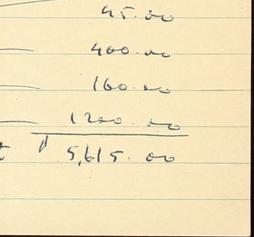 45.00
400.00
160.00
1200.00
t $ 5,615.00